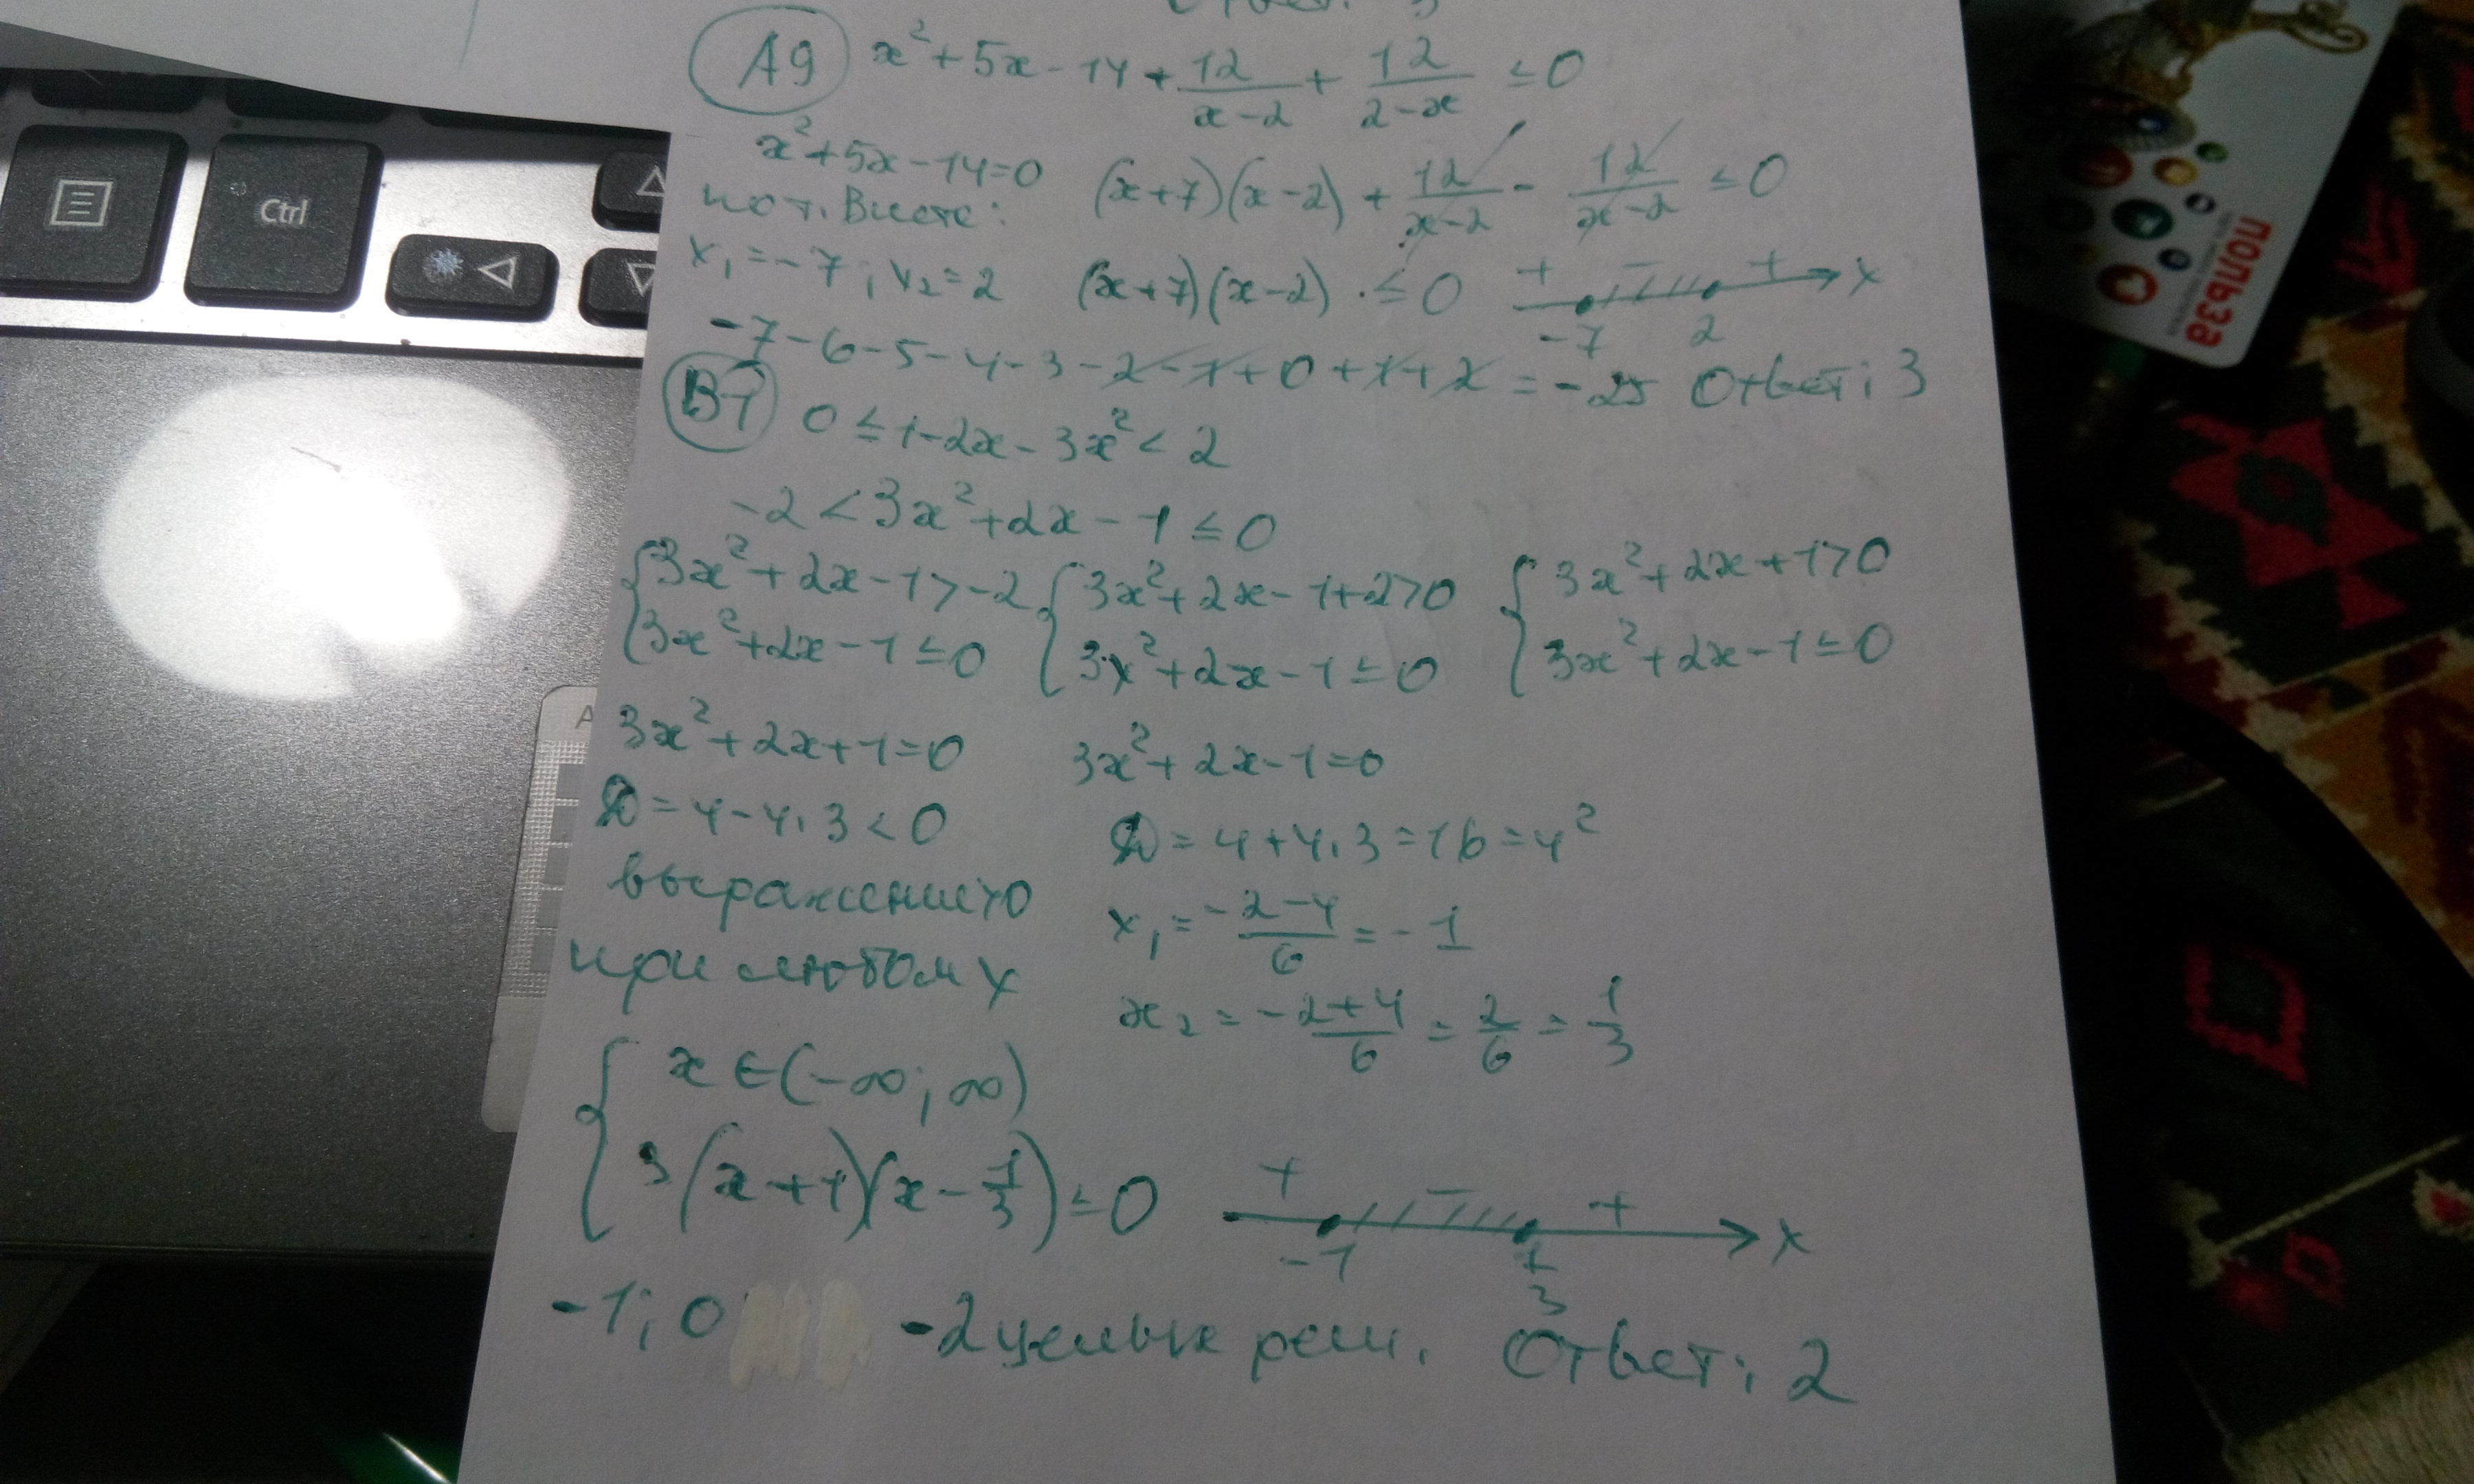 A9 x²+5x-14+12/(x-2)+12/(2-x) ≤0
x²+5x-14=0 (x+7)(x-2)+12/(x-2)-12/(x-2) ≤0
по т. Виете:
x₁=-7; x₂=2 (x+7)(x-2)·≤0 + - + x
-7 2
-7-6-5-4-3-2-1+0+1+2=-25 Ответ: 3
B1 0≤1-2x-3x²<2
-2<3x²+2x-1≤0
{3x²+2x-1>-2 {3x²+2x-1+2>0 {3x²+2x+1>0
{3x²+2x-1≤0 {3x²+2x-1≤0 {3x²+2x-1≤0
3x²+2x+1=0 3x²+2x-1=0
D=4-4·3<0 D=4+4·3=16=4²
выражение>0 x₁=(-2-4)/6=-1
при любом x x₂=(-2+4)/6=2/6=1/3
{x∈(-∞;∞)
{3(x+1)(x-1/3)≤0 + - + x
-1 1/3
-1; 0 -2 целых реш. Ответ: 2
Ctrl
A
польза